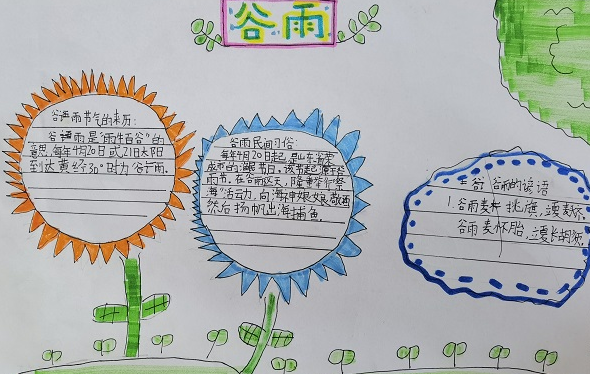 谷雨
谷雨节气的来历：
谷雨是"雨生百谷"的
意思，每年4月20日或21日太阳
到达黄经30°时为谷雨。
谷雨民间习俗：
每年4月20日起，是山东荣
渔民节日，
雨节，在谷雨这天，隆重举行祭
海"活动，向海神娘娘敬酒
然后扬帆出海捕鱼。
谷雨的谚语
1.谷雨麦挑旗，立夏麦
谷雨麦怀胎，立夏长胡须